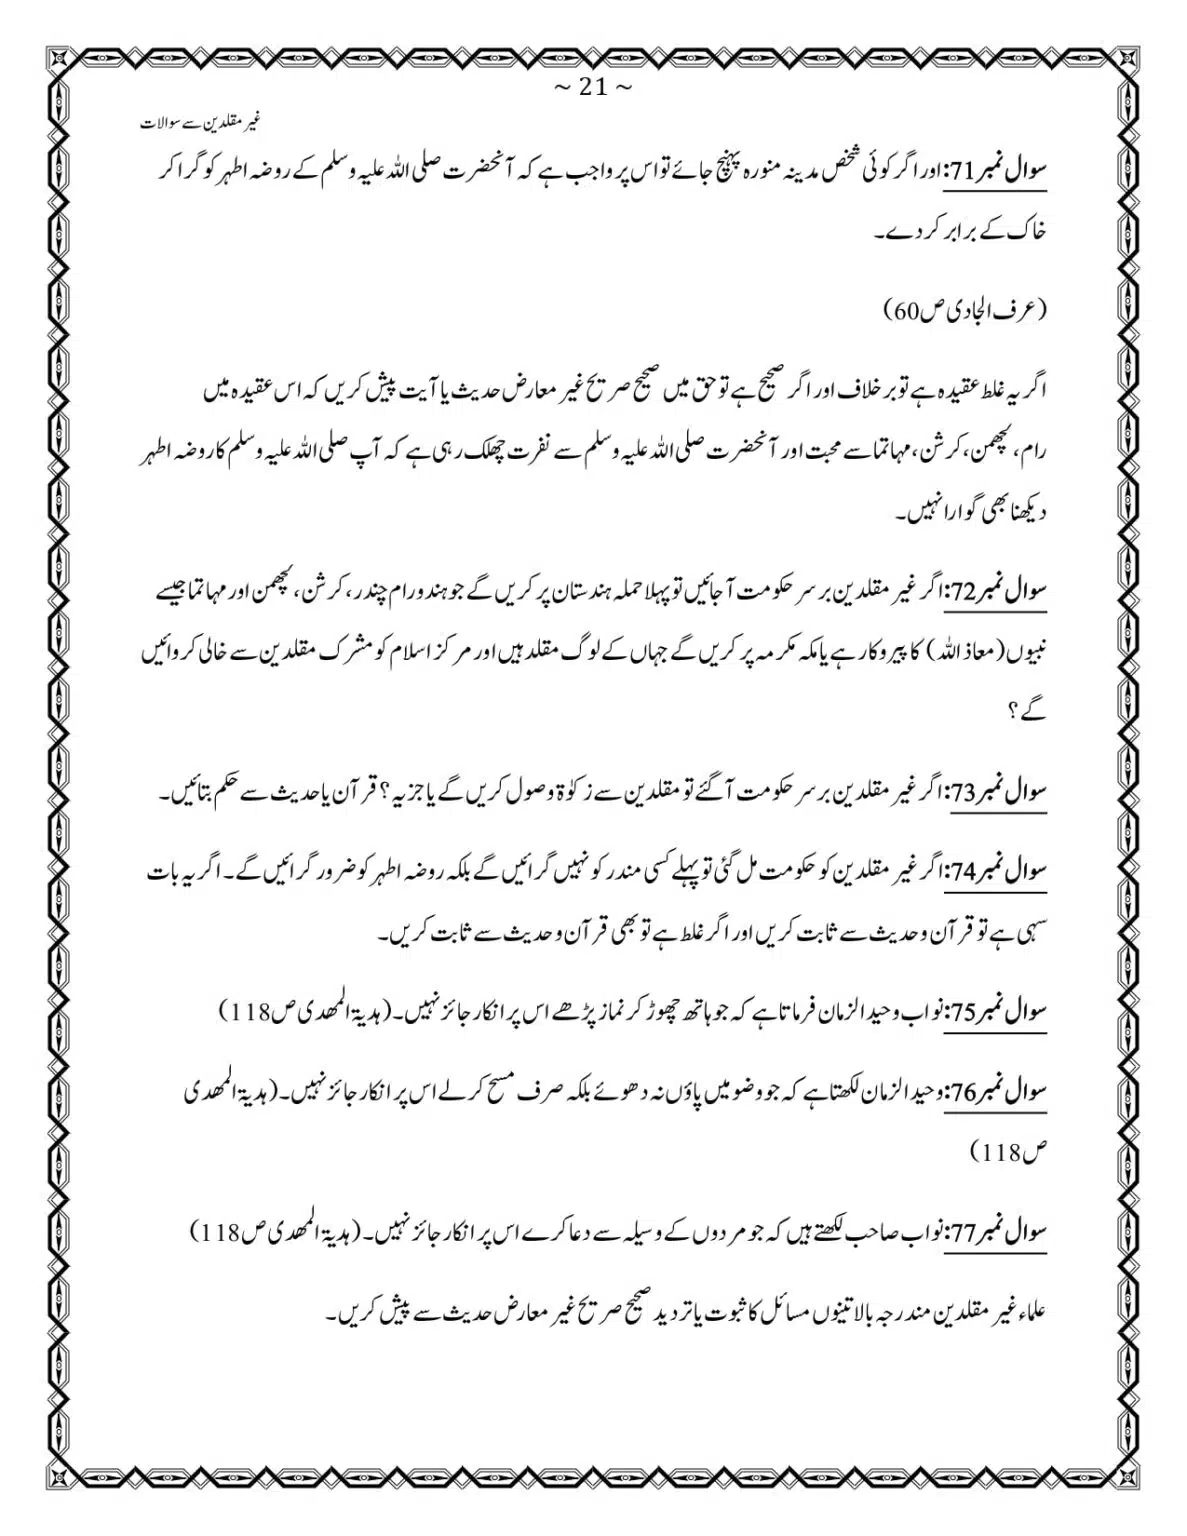 ~ 21 ~
غیر مقلدین سے سوالات
سوال نمبر71: اور اگر کوئی شخص مدینہ منورہ پہنچ جائے تو اس پر واجب ہے کہ آنحضرت صلی اللہ علیہ وسلم کے روضہ اطہر کو گرا کر
خاک کے برابر کر دے۔
(عرف الجادی ص60)
اگر یہ غلط عقیدہ ہے تو بر خلاف اور اگر صحیح ہے تو حق میں صحیح صریح غیر معارض حدیث یا آیت پیش کریں کہ اس عقیدہ میں
رام، لچھمن، کرشن، مہاتما سے محبت اور آنحضرت صلی اللہ علیہ وسلم سے نفرت چھلک رہی ہے کہ آپ صلی اللہ علیہ وسلم کا روضہ اطہر
دیکھنا بھی گوارا نہیں۔
سوال نمبر72: اگر غیر مقلدین بر سر حکومت آ جائیں تو پہلا حملہ ہندستان پر کریں گے جو ہندو رام چندر، کرشن، لچھمن اور مہاتما جیسے
نبیوں (معاذ اللہ) کا پیروکار ہے یا مکہ مکرمہ پر کریں گے جہاں کے لوگ مقلد ہیں اور مرکز اسلام کو مشرک مقلدین سے خالی کروائیں
گے؟
سوال نمبر73: اگر غیر مقلدین بر سر حکومت آ گئے تو مقلدین سے زکوٰۃ وصول کریں گے یا جزیہ؟ قرآن یا حدیث سے حکم بتائیں۔
سوال نمبر74: اگر غیر مقلدین کو حکومت مل گئی تو پہلے کسی مندر کو نہیں گرائیں گے بلکہ روضہ اطہر کو ضرور گرائیں گے۔ اگر یہ بات
سہی ہے تو قرآن و حدیث سے ثابت کریں اور اگر غلط ہے تو بھی قرآن و حدیث سے ثابت کریں۔
سوال نمبر75: نواب وحید الزمان فرماتا ہے کہ جو ہاتھ چھوڑ کر نماز پڑھے اس پر انکار جائز نہیں۔ (ہدیۃ المھدی ص118)
سوال نمبر76: وحید الزمان لکھتا ہے کہ جو وضو میں پاؤں نہ دھوئے بلکہ صرف مسح کر لے اس پر انکار جائز نہیں۔ (ہدیۃ المھدی
ص118)
سوال نمبر77: نواب صاحب لکھتے ہیں کہ جو مردوں کے وسیلہ سے دعا کرے اس پر انکار جائز نہیں۔ (ہدیۃ المھدی ص118)
علماء غیر مقلدین مندرجہ بالا تینوں مسائل کا ثبوت یا تردید صحیح صریح غیر معارض حدیث سے پیش کریں۔